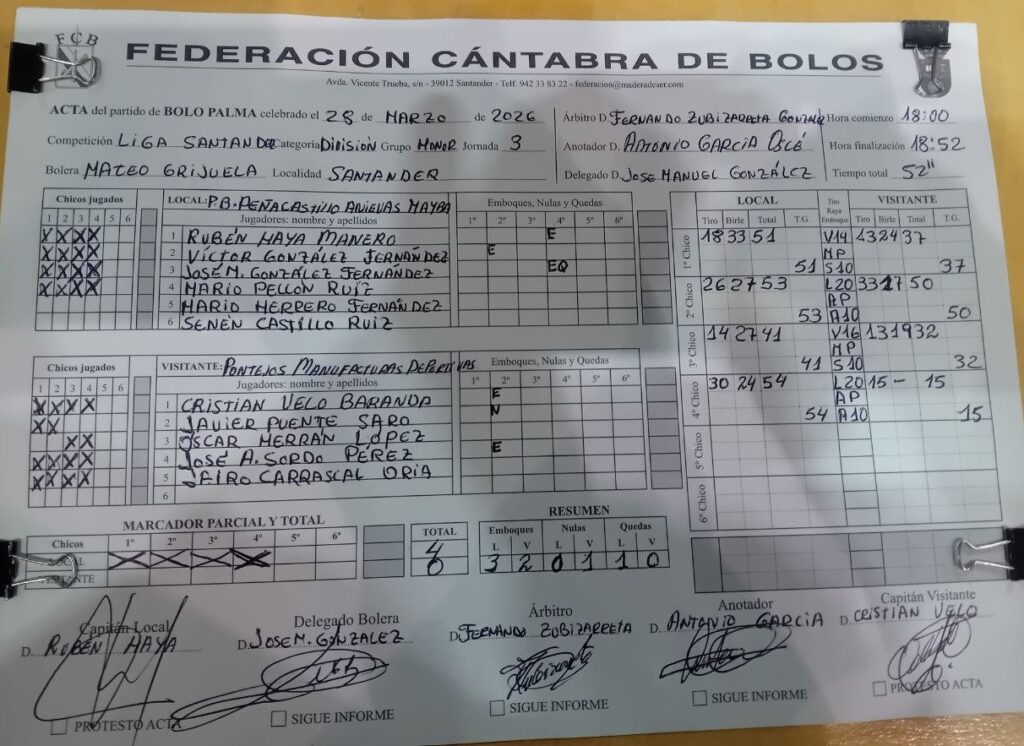 FCB
FEDERACIÓN CÁNTABRA DE BOLOS
Avda. Vicente Trueba, s/n - 39012 Santander - Telf. 942 33 83 22 - federacion@maderadeser.com
ACTA del partido de BOLO PALMA celebrado el 28 de MARZO de 2026
Competición LIGA SANTANDER Categoría DIVISIÓN Grupo HONOR Jornada 3
Bolera MATEO GRIJUELA Localidad SANTANDER
Árbitro D. FERNANDO ZUBIZARRETA Hora comienzo 18:00
Anotador D. ANTONIO GARCIA Hora finalización 18:52
Delegado D. JOSE MANUEL GONZÁLEZ Tiempo total 52"
Chicos jugados
1 2 3 4 5 6
X X X X
X X X X
X X X X
X X X X
LOCAL: P.B. PEÑACASTILLO ANIEVAS MAYBA
Jugadores: nombre y apellidos
1 RUBÉN HAYA MANERO
2 VÍCTOR GONZÁLEZ FERNÁNDEZ
3 JOSÉ M. GONZÁLEZ FERNÁNDEZ
4 MARIO PELLÓN RUÍZ
5 MARIO HERRERO FERNÁNDEZ
6 SENÉN CASTILLO RUIZ
Emboques, Nulas y Quedas
1º 2º 3º 4º 5º 6º
E
E
EQ
Chicos jugados
1 2 3 4 5 6
X X X X
X X
X X
X X X X
X X X X
VISITANTE: PONTEJOS MANUFACTURAS DEPORTIVAS
Jugadores: nombre y apellidos
1 CRISTIAN VELO BARANDA
2 JAVIER PUENTE SARO
3 OSCAR HERRÁN LÓPEZ
4 JOSÉ A. SORDO PÉREZ
5 JAIRO CARRASCAL ORIA
6
Emboques, Nulas y Quedas
1º 2º 3º 4º 5º 6º
E
N
E
LOCAL Tiro Raya Emboque VISITANTE
Tiro Birle Total T.G. Tiro Birle Total T.G.
1º Chico 18 33 51 V14 13 24 37
MP
51 S10 37
2º Chico 26 27 53 L20 33 17 50
AP
53 A10 50
3º Chico 14 27 41 V16 13 19 32
MP
41 S10 32
4º Chico 30 24 54 L20 15 - 15
AP
54 A10 15
5º Chico
6º Chico
MARCADOR PARCIAL Y TOTAL
Chicos 1º 2º 3º 4º 5º 6º TOTAL
LOCAL X X X X 4
VISITANTE 0
RESUMEN
Emboques Nulas Quedas
L V L V L V
3 2 0 1 1 0
Capitán Local
D. RUBÉN HAYA
PROTESTO ACTA
Delegado Bolera
D. JOSE M. GONZALEZ
SIGUE INFORME
Árbitro
D. FERNANDO ZUBIZARRETA
SIGUE INFORME
Anotador
D. ANTONIO GARCIA
SIGUE INFORME
Capitán Visitante
D. CRISTIAN VELO
PROTESTO ACTA